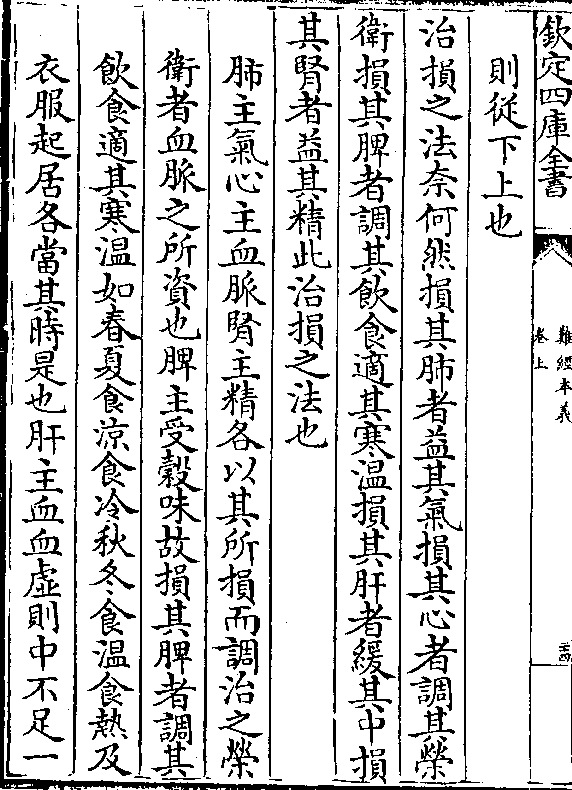 欽定四庫全書
難經本義
卷上
則從下上也
治損之法奈何然損其肺者益其氣損其心者調其榮
衛損其脾者調其飲食適其寒温損其肝者緩其中損
其腎者益其精此治損之法也
肺主氣心主血脈腎主精各以其所損而調治之榮
衛者血脈之所資也脾主受穀味故損其脾者調其
飲食適其寒温如春夏食凉食冷秋冬食温食熱及
衣服起居各當其時是也肝主血血虛則中不足一